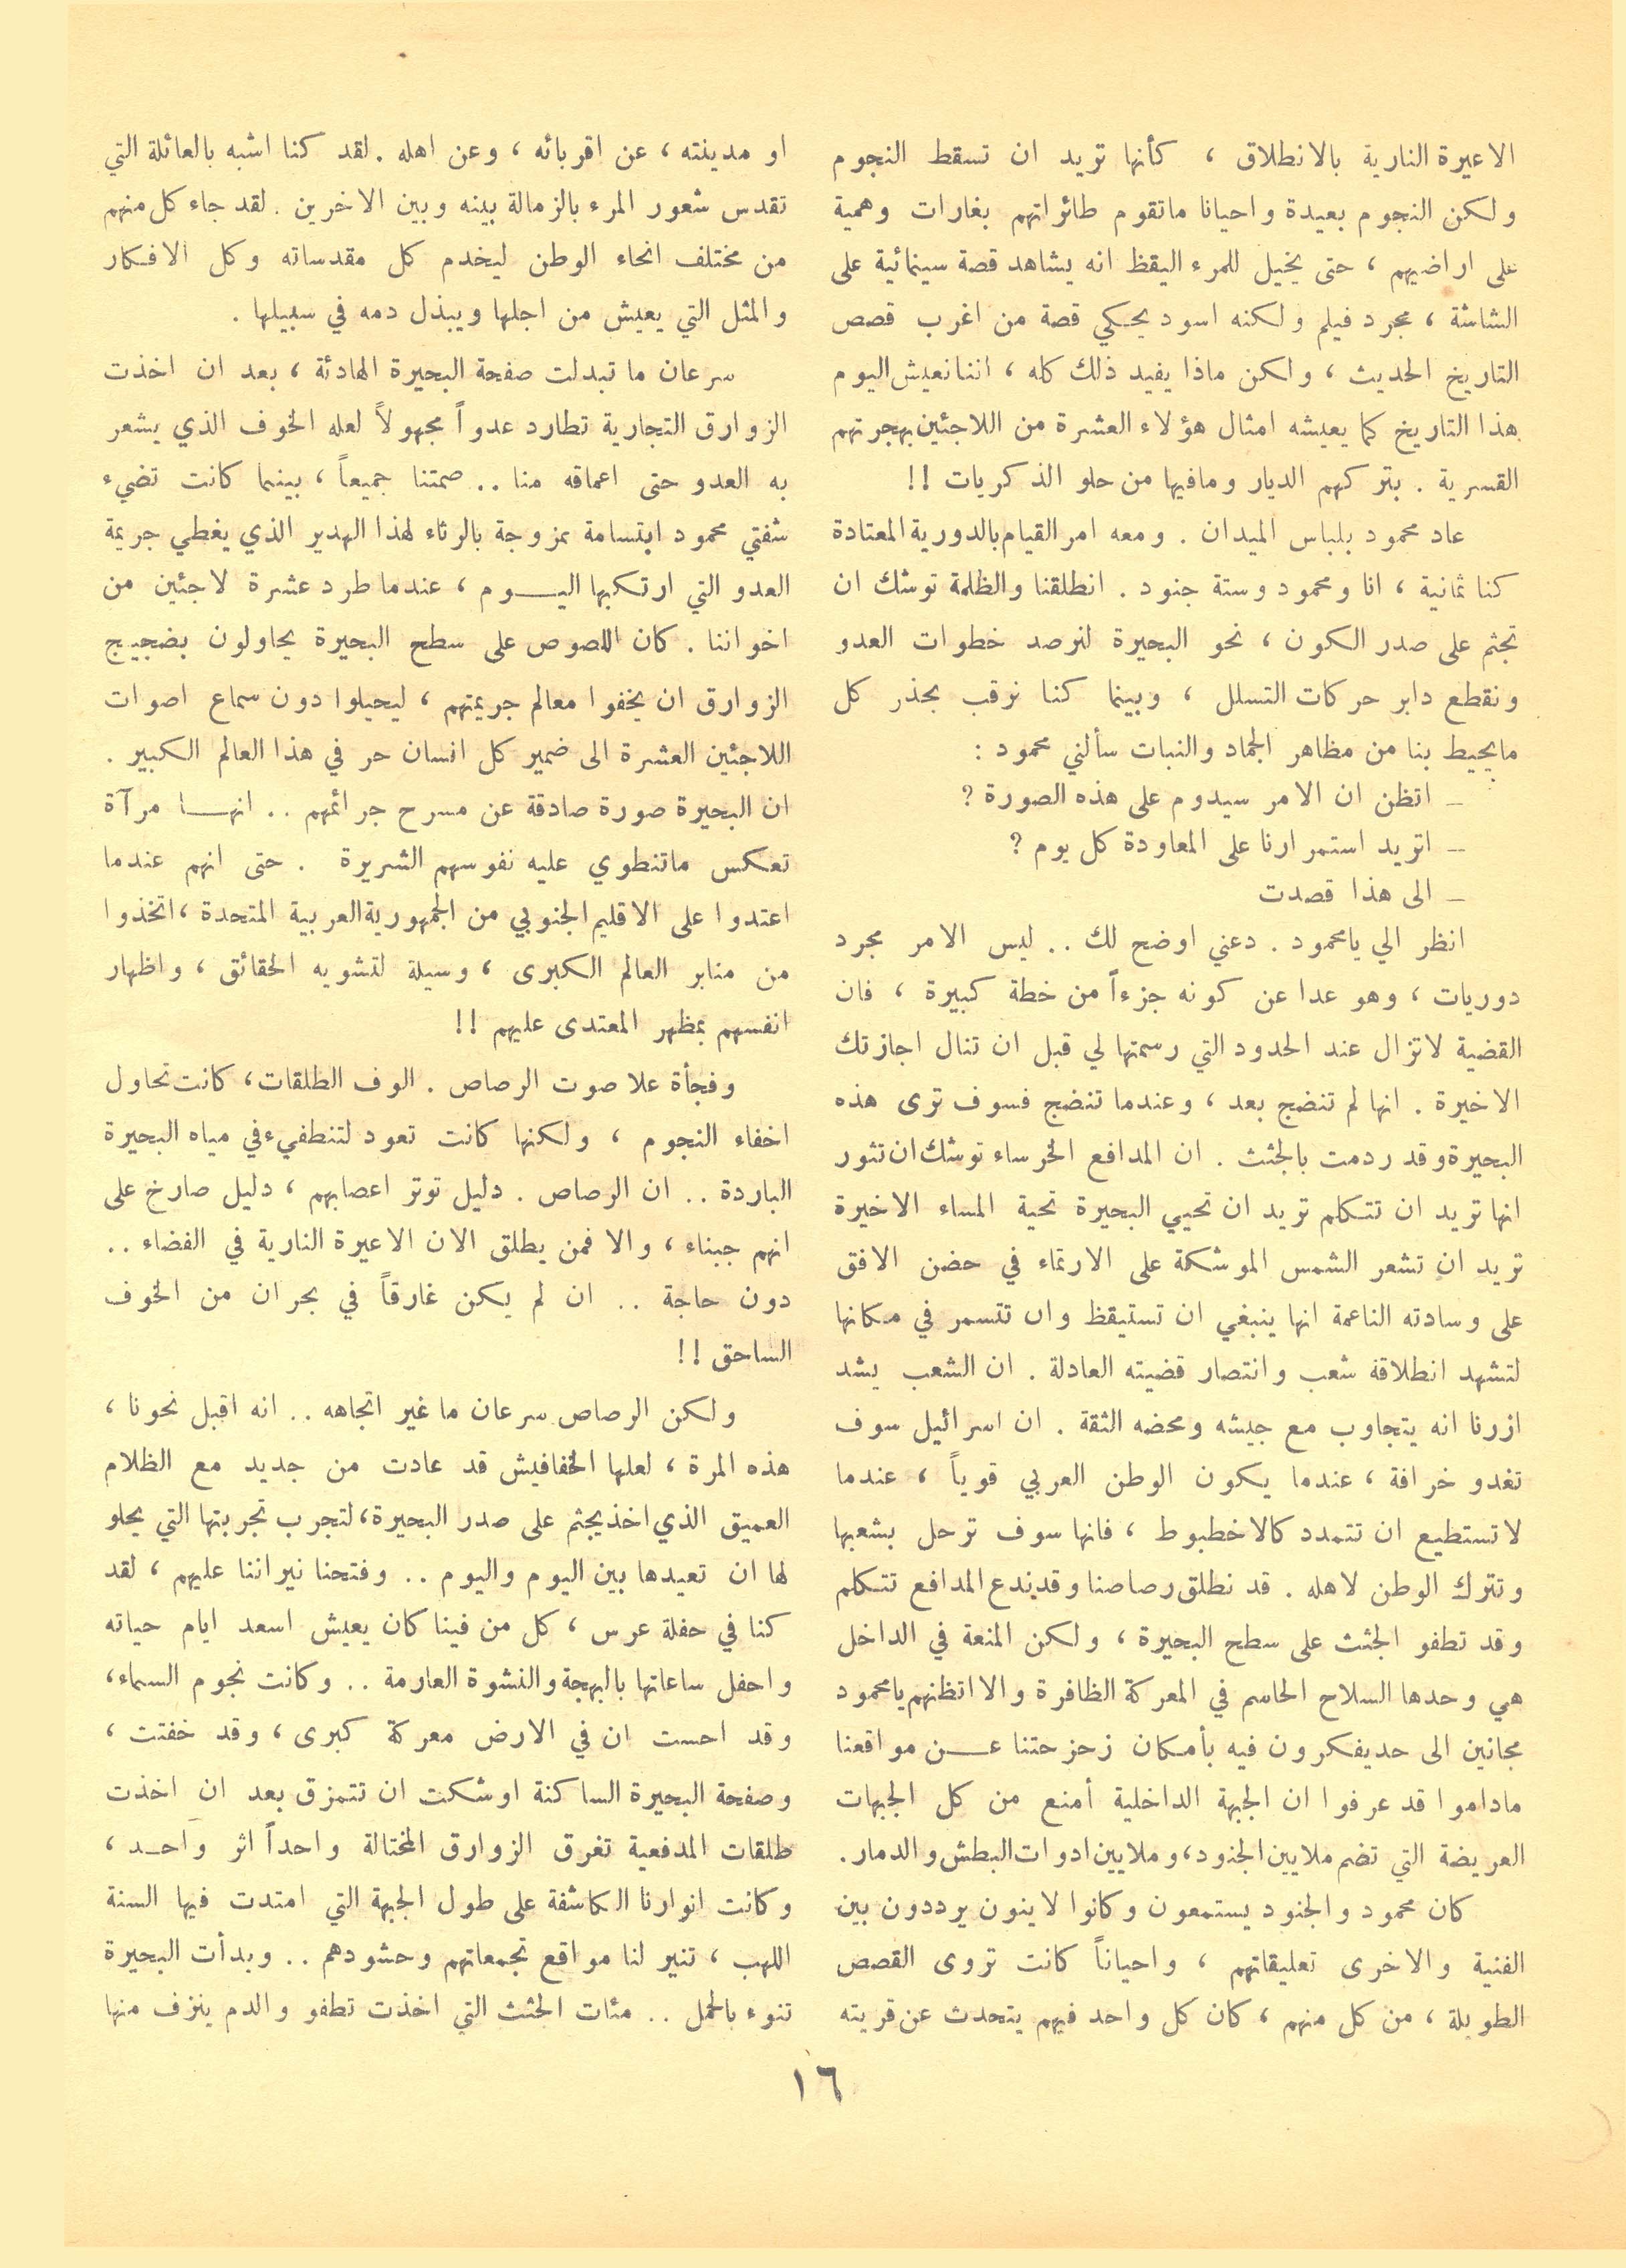 الاعيرة النارية بالانطلاق ، كأنها تريد ان تسقط النجوم
ولكن النجوم بعيدة واحيانا ماتقوم طائراتهم بغارات وهمية
على اراضيهم ، حتى يخيل للمرء اليقظ انه يشاهد قصة سينمائية على
الشاشة ، مجرد فيلم ولكنه اسود يحكي قصة من اغرب قصص
التاريخ الحديث ، ولكن ماذا يفيد ذلك كله ، اننا نعيش اليوم
هذا التاريخ كما يعيشه امثال هؤلاء العشرة من اللاجئين بهجرتهم
القسرية . بتركهم الديار ومافيها من حلو الذكريات !!
عاد محمود بلباس الميدان . ومعه امر القيام بالدورية المعتادة
كنا ثمانية ، انا ومحمود وستة جنود . انطلقنا والظلمة توشك ان
تجثم على صدر الكون ، نحو البحيرة لنرصد خطوات العدو
ونقطع دابر حركات التسلل ، وبينما كنا نرقب بحذر كل
مايحيط بنا من مظاهر الجماد والنبات سألني محمود :
ـ اتظن ان الامر سيدوم على هذه الصورة ؟
ـ اتريد استمرارنا على المعاودة كل يوم ؟
ـ الى هذا قصدت
انظر الي يامحمود . دعني اوضح لك .. ليس الامر مجرد
دوريات ، وهو عدا عن كونه جزءاً من خطة كبيرة ، فان
القضية لاتزال عند الحدود التي رسمتها لي قبل ان تنال اجازتك
الاخيرة . انها لم تنضج بعد ، وعندما تنضج فسوف ترى هذه
البحيرة وقد ردمت بالجثث . ان المدافع الخرساء توشك ان تثور
انها تريد ان تتكلم تريد ان تحيي البحيرة تحية المساء الاخيرة
تريد ان تشعر الشمس الموشكة على الارتماء في حضن الافق
على وسادته الناعمة انها ينبغي ان تستيقظ وان تتسمر في مكانها
لتشهد انطلاقة شعب وانتصار قضيته العادلة . ان الشعب يشد
ازرنا انه يتجاوب مع جيشه ومحضه الثقة . ان اسرائيل سوف
تغدو خرافة ، عندما يكون الوطن العربي قوياً ، عندما
لاتستطيع ان تتمدد كالاخطبوط ، فانها سوف ترحل بشعبها
وتترك الوطن لاهله . قد نطلق رصاصنا وقد ندع المدافع تتكلم
وقد تطفو الجثث على سطح البحيرة ، ولكن المنعة في الداخل
هي وحدها السلاح الحاسم في المعركة الظافرة والا اتظنهم يامحمود
مجانين الى حد يفكرون فيه بأمكان زحزحتنا عــن مواقعنا
ماداموا قد عرفوا ان الجبهة الداخلية أمنع من كل الجبهات
العريضة التي تضم ملايين الجنود، وملايين ادوات البطش والدمار.
كان محمود والجنود يستمعون وكانوا لاينون يرددون بين
الفنية والاخرى تعليقاتهم ، واحياناً كانت تروى القصص
الطويلة ، من كل منهم ، كان كل واحد فيهم يتحدث عن قريته
او مدينته ، عن اقربائه ، وعن اهله . لقد كنا اشبه بالعائلة التي
تقدس شعور المرء بالزمالة بينه وبين الاخرين . لقد جاء كل منهم
من مختلف انحاء الوطن ليخدم كل مقدساته وكل الافكار
والمثل التي يعيش من اجلها ويبذل دمه في سبيلها .
سرعان ما تبدلت صفحة البحيرة الهادئة ، بعد ان اخذت
الزوارق التجارية تطارد عدواً مجهولاً لعله الخوف الذي يشعر
به العدو حتى اعماقه منا .. صمتنا جميعاً ، بينما كانت تضيء
شفتي محمود ابتسامة ممزوجة بالرثاء لهذا الهدير الذي يغطي جريمة
العدو التي ارتكبها اليــوم ، عندما طرد عشرة لاجئين من
اخواننا . كان اللصوص على سطح البحيرة يحاولون بضجيج
الزوارق ان يخفوا معالم جريمتهم ، ليحيلوا دون سماع اصوات
اللاجئين العشرة الى ضمير كل انسان حر في هذا العالم الكبير .
ان البحيرة صورة صادقة عن مسرح جرائمهم .. انهــا مرآة
تعكس ماتنطوي عليه نفوسهم الشريرة . حتى انهم عندما
اعتدوا على الاقليم الجنوبي من الجمهورية العربية المتحدة ، اتخذوا
من منابر العالم الكبرى ، وسيلة لتشويه الحقائق ، واظهار
انفسهم بمظهر المعتدى عليهم !!
وفجأة علا صوت الرصاص . الوف الطلقات، كانت تحاول
اخفاء النجوم ، ولكنها كانت تعود لتنطفيء في مياه البحيرة
الباردة .. ان الرصاص . دليل توتر اعصابهم ، دليل صارخ على
انهم جبناء ، والا فمن يطلق الان الاعيرة النارية في الفضاء ..
دون حاجة .. ان لم يكن غارقاً في بحران من الخوف
الساحق !!
ولكن الرصاص سرعان ما غير اتجاهه .. انه اقبل نحونا ،
هذه المرة ، لعلها الخفافيش قد عادت من جديد مع الظلام
العميق الذي اخذ يجثم على صدر البحيرة، لتجرب تجربتها التي يحلو
لها ان تعيدها بين اليوم واليوم .. وفتحنا نيراننا عليهم ، لقد
كنا في حفلة عرس ، كل من فينا كان يعيش اسعد ايام حياته
واحفل ساعاتها بالبهجة والنشوة العارمة .. وكانت نجوم السماء،
وقد احست ان في الارض معركة كبرى ، وقد خفتت ،
وصفحة البحيرة الساكنة اوشكت ان تتمزق بعد ان اخذت
طلقات المدفعية تغرق الزوارق المختالة واحداً اثر واحـد ،
وكانت انوارنا الكاشفة على طول الجبهة التي امتدت فيها السنة
اللهب ، تنير لنا مواقع تجمعاتهم وحشودهم .. وبدأت البحيرة
تنوء بالحمل .. مئات الجثث التي اخذت تطفو والدم ينزف منها
١٦